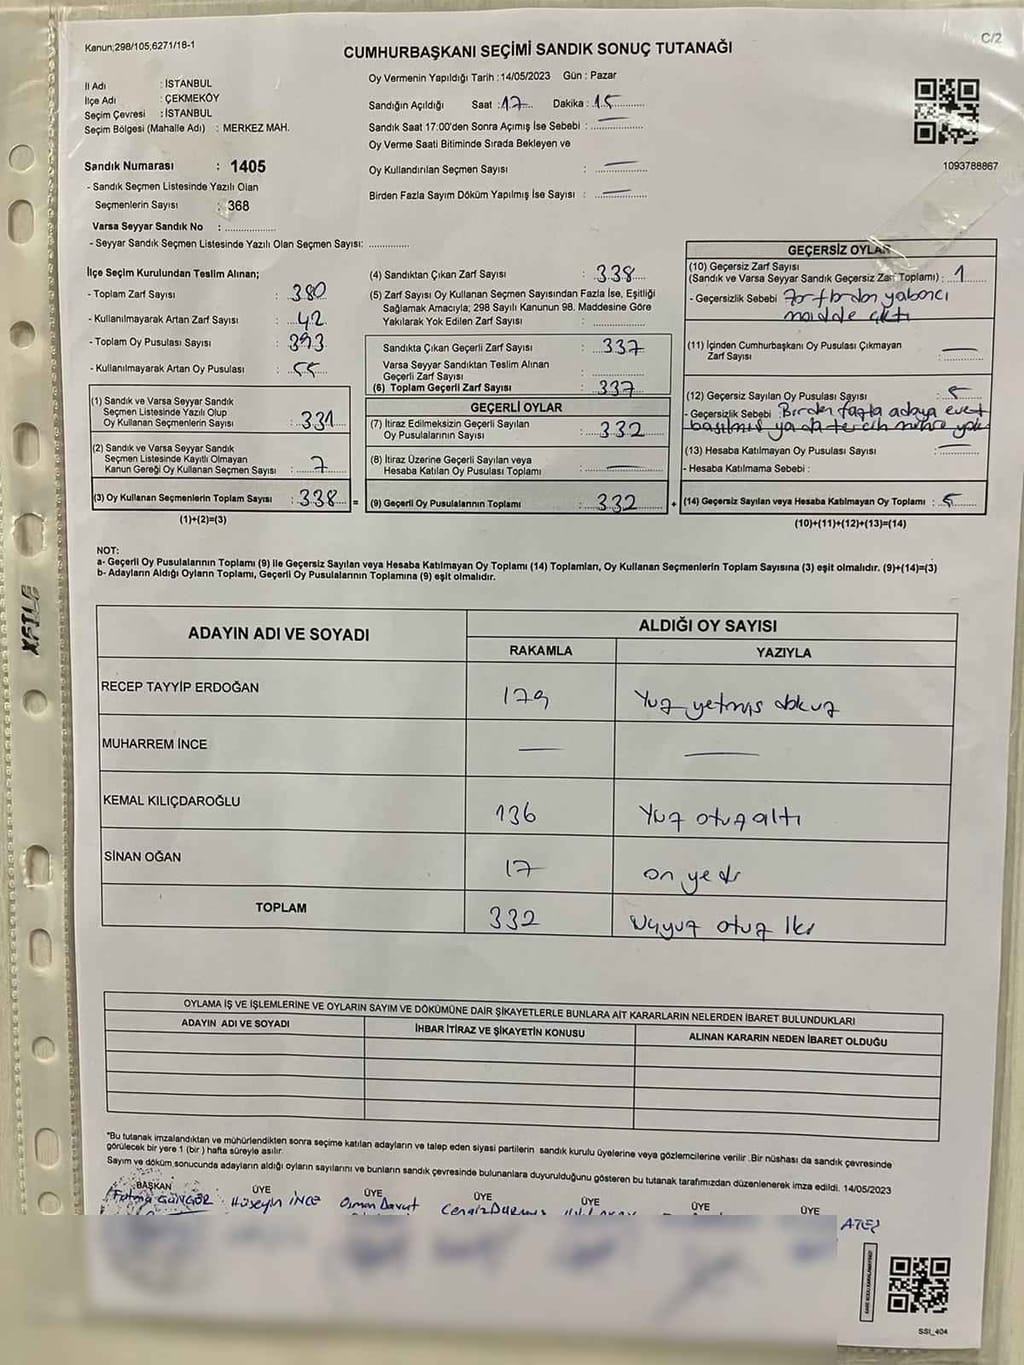 Kanun;298/105,6271/18-1
C/2
CUMHURBAŞKANI SEÇİMİ SANDIK SONUÇ TUTANAĞI
İl Adı : İSTANBUL
İlçe Adı : ÇEKMEKÖY
Seçim Çevresi : İSTANBUL
Seçim Bölgesi (Mahalle Adı) : MERKEZ MAH.
Sandık Numarası : 1405
- Sandık Seçmen Listesinde Yazılı Olan
Seçmenlerin Sayısı : 368
Varsa Seyyar Sandık No : ..............
- Seyyar Sandık Seçmen Listesinde Yazılı Olan Seçmen Sayısı: ............
Oy Vermenin Yapıldığı Tarih : 14/05/2023 Gün : Pazar
Sandığın Açıldığı Saat : 17 Dakika : 15
Sandık Saat 17:00'den Sonra Açımış İse Sebebi : —
Oy Verme Saati Bitiminde Sırada Bekleyen ve
Oy Kullandırılan Seçmen Sayısı : —
Birden Fazla Sayım Döküm Yapılmış İse Sayısı : —
1093788867
İlçe Seçim Kurulundan Teslim Alınan;
- Toplam Zarf Sayısı : 380
- Kullanılmayarak Artan Zarf Sayısı : 42
- Toplam Oy Pusulası Sayısı : 393
- Kullanılmayarak Artan Oy Pusulası : 55
(1) Sandık ve Varsa Seyyar Sandık
Seçmen Listesinde Yazılı Olup
Oy Kullanan Seçmenlerin Sayısı : 331
(2) Sandık ve Varsa Seyyar Sandık
Seçmen Listesinde Kayıtlı Olmayan
Kanun Gereği Oy Kullanan Seçmen Sayısı : 7
(3) Oy Kullanan Seçmenlerin Toplam Sayısı : 338 =
(1)+(2)=(3)
(4) Sandıktan Çıkan Zarf Sayısı : 338
(5) Zarf Sayısı Oy Kullanan Seçmen Sayısından Fazla İse, Eşitliği
Sağlamak Amacıyla; 298 Sayılı Kanunun 98. Maddesine Göre
Yakılarak Yok Edilen Zarf Sayısı : ............
Sandıkta Çıkan Geçerli Zarf Sayısı : 337
Varsa Seyyar Sandıktan Teslim Alınan
Geçerli Zarf Sayısı : ............
(6) Toplam Geçerli Zarf Sayısı : 337
GEÇERLİ OYLAR
(7) İtiraz Edilmeksizin Geçerli Sayılan
Oy Pusulalarının Sayısı : 332
(8) İtiraz Üzerine Geçerli Sayılan veya
Hesaba Katılan Oy Pusulası Toplamı : —
(9) Geçerli Oy Pusulalarının Toplamı : 332 +
GEÇERSİZ OYLAR
(10) Geçersiz Zarf Sayısı
(Sandık ve Varsa Seyyar Sandık Geçersiz Zarf Toplamı) : 1
- Geçersizlik Sebebi Zarftan yabancı
madde çıktı
(11) İçinden Cumhurbaşkanı Oy Pusulası Çıkmayan
Zarf Sayısı : —
(12) Geçersiz Sayılan Oy Pusulası Sayısı : 5
- Geçersizlik Sebebi Birden fazla adaya evet
basılmış ya da tercih mührü yok
(13) Hesaba Katılmayan Oy Pusulası Sayısı : —
- Hesaba Katılmama Sebebi :
(14) Geçersiz Sayılan veya Hesaba Katılmayan Oy Toplamı : 5
(10)+(11)+(12)+(13)=(14)
NOT:
a- Geçerli Oy Pusulalarının Toplamı (9) ile Geçersiz Sayılan veya Hesaba Katılmayan Oy Toplamı (14) Toplamları, Oy Kullanan Seçmenlerin Toplam Sayısına (3) eşit olmalıdır. (9)+(14)=(3)
b- Adayların Aldığı Oyların Toplamı, Geçerli Oy Pusulalarının Toplamına (9) eşit olmalıdır.
ADAYIN ADI VE SOYADI
ALDIĞI OY SAYISI
RAKAMLA YAZIYLA
RECEP TAYYİP ERDOĞAN 179 Yüz yetmiş dokuz
MUHARREM İNCE — —
KEMAL KILIÇDAROĞLU 136 Yüz otuz altı
SİNAN OĞAN 17 on yedi
TOPLAM 332 Üçyüz otuz iki
OYLAMA İŞ VE İŞLEMLERİNE VE OYLARIN SAYIM VE DÖKÜMÜNE DAİR ŞİKAYETLERLE BUNLARA AİT KARARLARIN NELERDEN İBARET BULUNDUKLARI
ADAYIN ADI VE SOYADI İHBAR İTİRAZ VE ŞİKAYETİN KONUSU ALINAN KARARIN NEDEN İBARET OLDUĞU
*Bu tutanak imzalandıktan ve mühürlendikten sonra seçime katılan adayların ve talep eden siyasi partilerin sandık kurulu üyelerine veya gözlemcilerine verilir .Bir nüshası da sandık çevresinde
görülecek bir yere 1 (bir ) hafta süreyle asılır.
Sayım ve döküm sonucunda adayların aldığı oyların sayılarını ve bunların sandık çevresinde bulunanlara duyurulduğunu gösteren bu tutanak tarafımızdan düzenlenerek imza edildi. 14/05/2023
BAŞKAN ÜYE ÜYE ÜYE ÜYE ÜYE ÜYE
Fatma GÜNGÖR Hüseyin İNCE Osman Davut Cengiz ATEŞ
SSI_404
XFILE